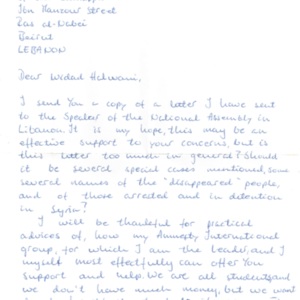 Ibn Manzour Street
Ras al-Nabei
Beirut
LEBANON
Dear Widad Halwani,
I send You a copy of a letter I have sent
to the Speaker of the National Assembly in
Libanon. It is my hope, this may be an
effective support to your concerns, but is
this letter too much in general? Should
it be several special cases mentioned, some
several names of the "disappeared" people,
and of those arrested and in detention
in Syria?
I will be thankful for practical
advices of, how my Amnesty International
group, for which I am the leader, and I
myself most effectfully can offer You
support and help. We are all students and
we don't have much money, but we want